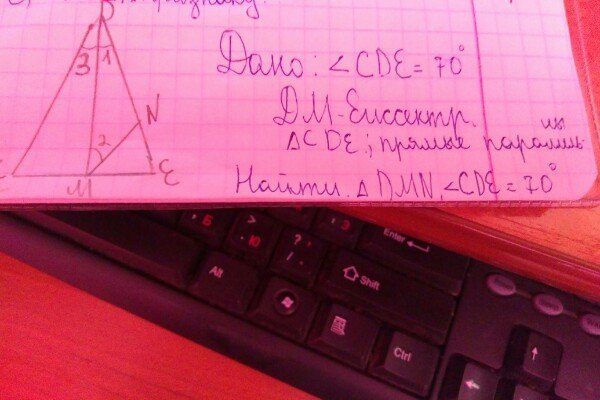 признаку.
D
3 1
N
2
M E
Дано: ∠CDE = 70°
DM-биссектр.
△CDE; прямые параллель
ны
Найти. △DMN, ∠CDE = 70°
Б
>
.Ю
?
/
.
Э
Enter
Alt
Shift
Ctrl